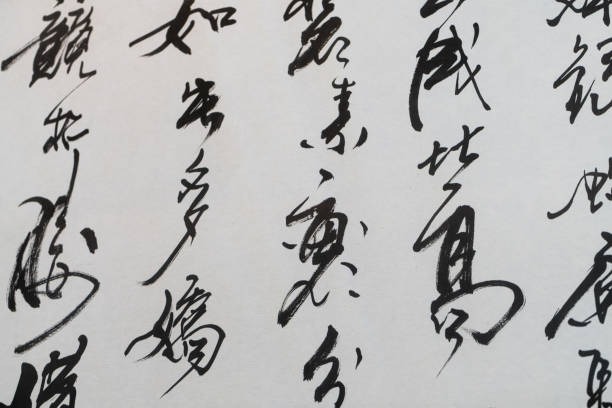 銀蛇原馳
試比高
裝素裹分
如此多嬌
競折腰惜